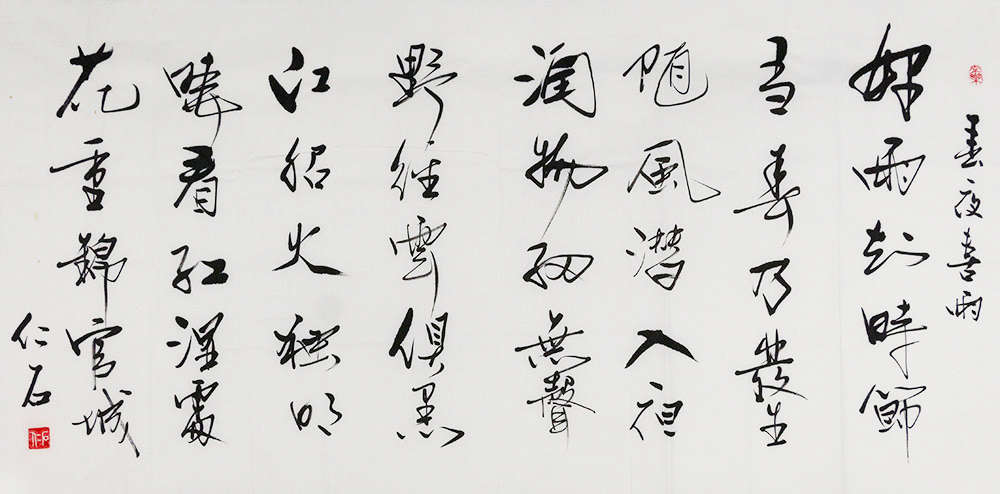 春夜喜雨
好雨知時節
當春乃發生
随風潛入夜
潤物細無聲
野徑雲俱黑
江船火獨明
曉看紅濕處
花重錦官城
仁石